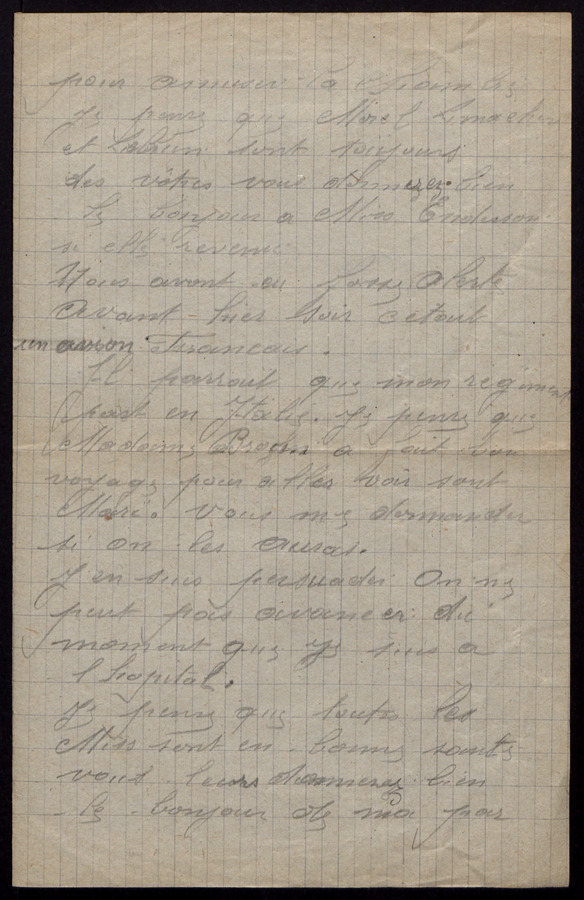 pour amuser la
Je pense que Morel
et sont toujours
des votres vous donnerez bien
le bonjour a Miss Enderson
si elle revenu
Nous avont eu foosse alerte
avant-hier soir cetait
un avion Francais.
Il parrait que mon regiment
part en Italie. Je pense que
Madame Brown a fait bon
voyage pour aller voir sont
Mari. Vous me demander
si on les auras.
J en suis persuader On ne
peut pas avancer du
moment que je suis a
l hopital.
Je pense que toutes les
Miss sont en bonne sante
vous leurs donnerez bien
le bonjour de ma par